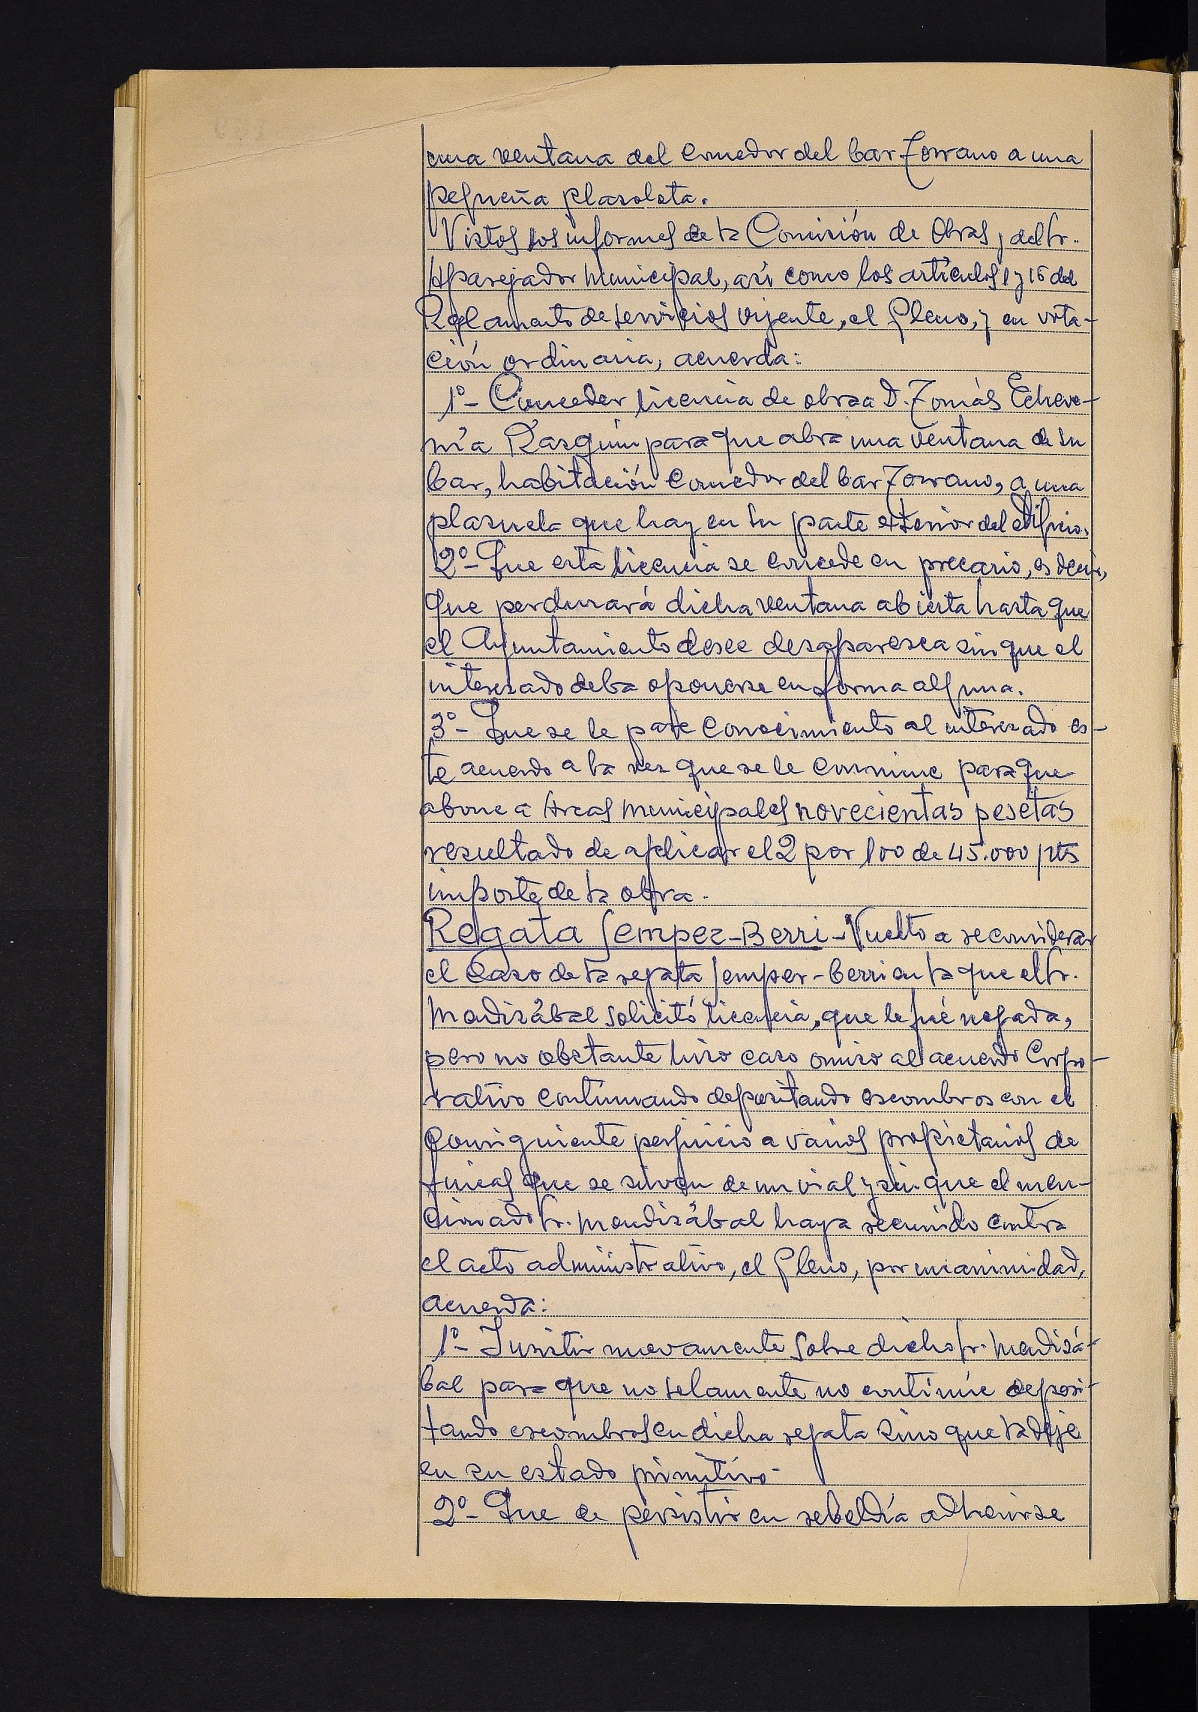 una ventana del Comedor del bar Torrano a una
pequeña plazoleta.
Vistos los informes de la Comisión de Obras y del Sr.
Aparejador Municipal, así como los artículos 1 y 16 del
Reglamento de servicios vigente, el Pleno, y en vota-
ción ordinaria, acuerda:
1º- Conceder licencia de obra a D. Tomás Echeve-
rría Yarguin para que abra una ventana de su
bar, habitación Comedor del bar Torrano, a una
plazuela que hay en su parte exterior del edificio.
2º- Que esta licencia se concede en precario, es decir,
que perdurará dicha ventana abierta hasta que
el Ayuntamiento desee desaparezca sin que el
interesado deba oponerse en forma alguna.
3º- Que se le pase conocimiento al interesado es-
te acuerdo a la vez que se le conmine para que
abone a Arcas Municipales novecientas pesetas
resultado de aplicar el 2 por 100 de 45.000 pts
importe de la obra.
Regata Semper-Berri-Vuelto a reconsiderar
el Caso de la regata Semper-berri en la que el Sr.
Mendizábal solicitó licencia, que le fué negada,
pero no obstante hizo caso omiso al acuerdo Corpo-
rativo continuando depositando escombros con el
Consiguiente perjuicio a varios propietarios de
fincas que se sirven de un vial y sin que el men-
cionado Sr. Mendizábal haya recurrido contra
el acto administrativo, el Pleno, por unanimidad,
acuerda:
1º- Insistir nuevamente sobre dicho Sr. Mendizá-
bal para que no solamente no continúe deposi-
tando escombros en dicha regata sino que la deje
en su estado primitivo-
2º- Que de persistir en rebeldía adherirse